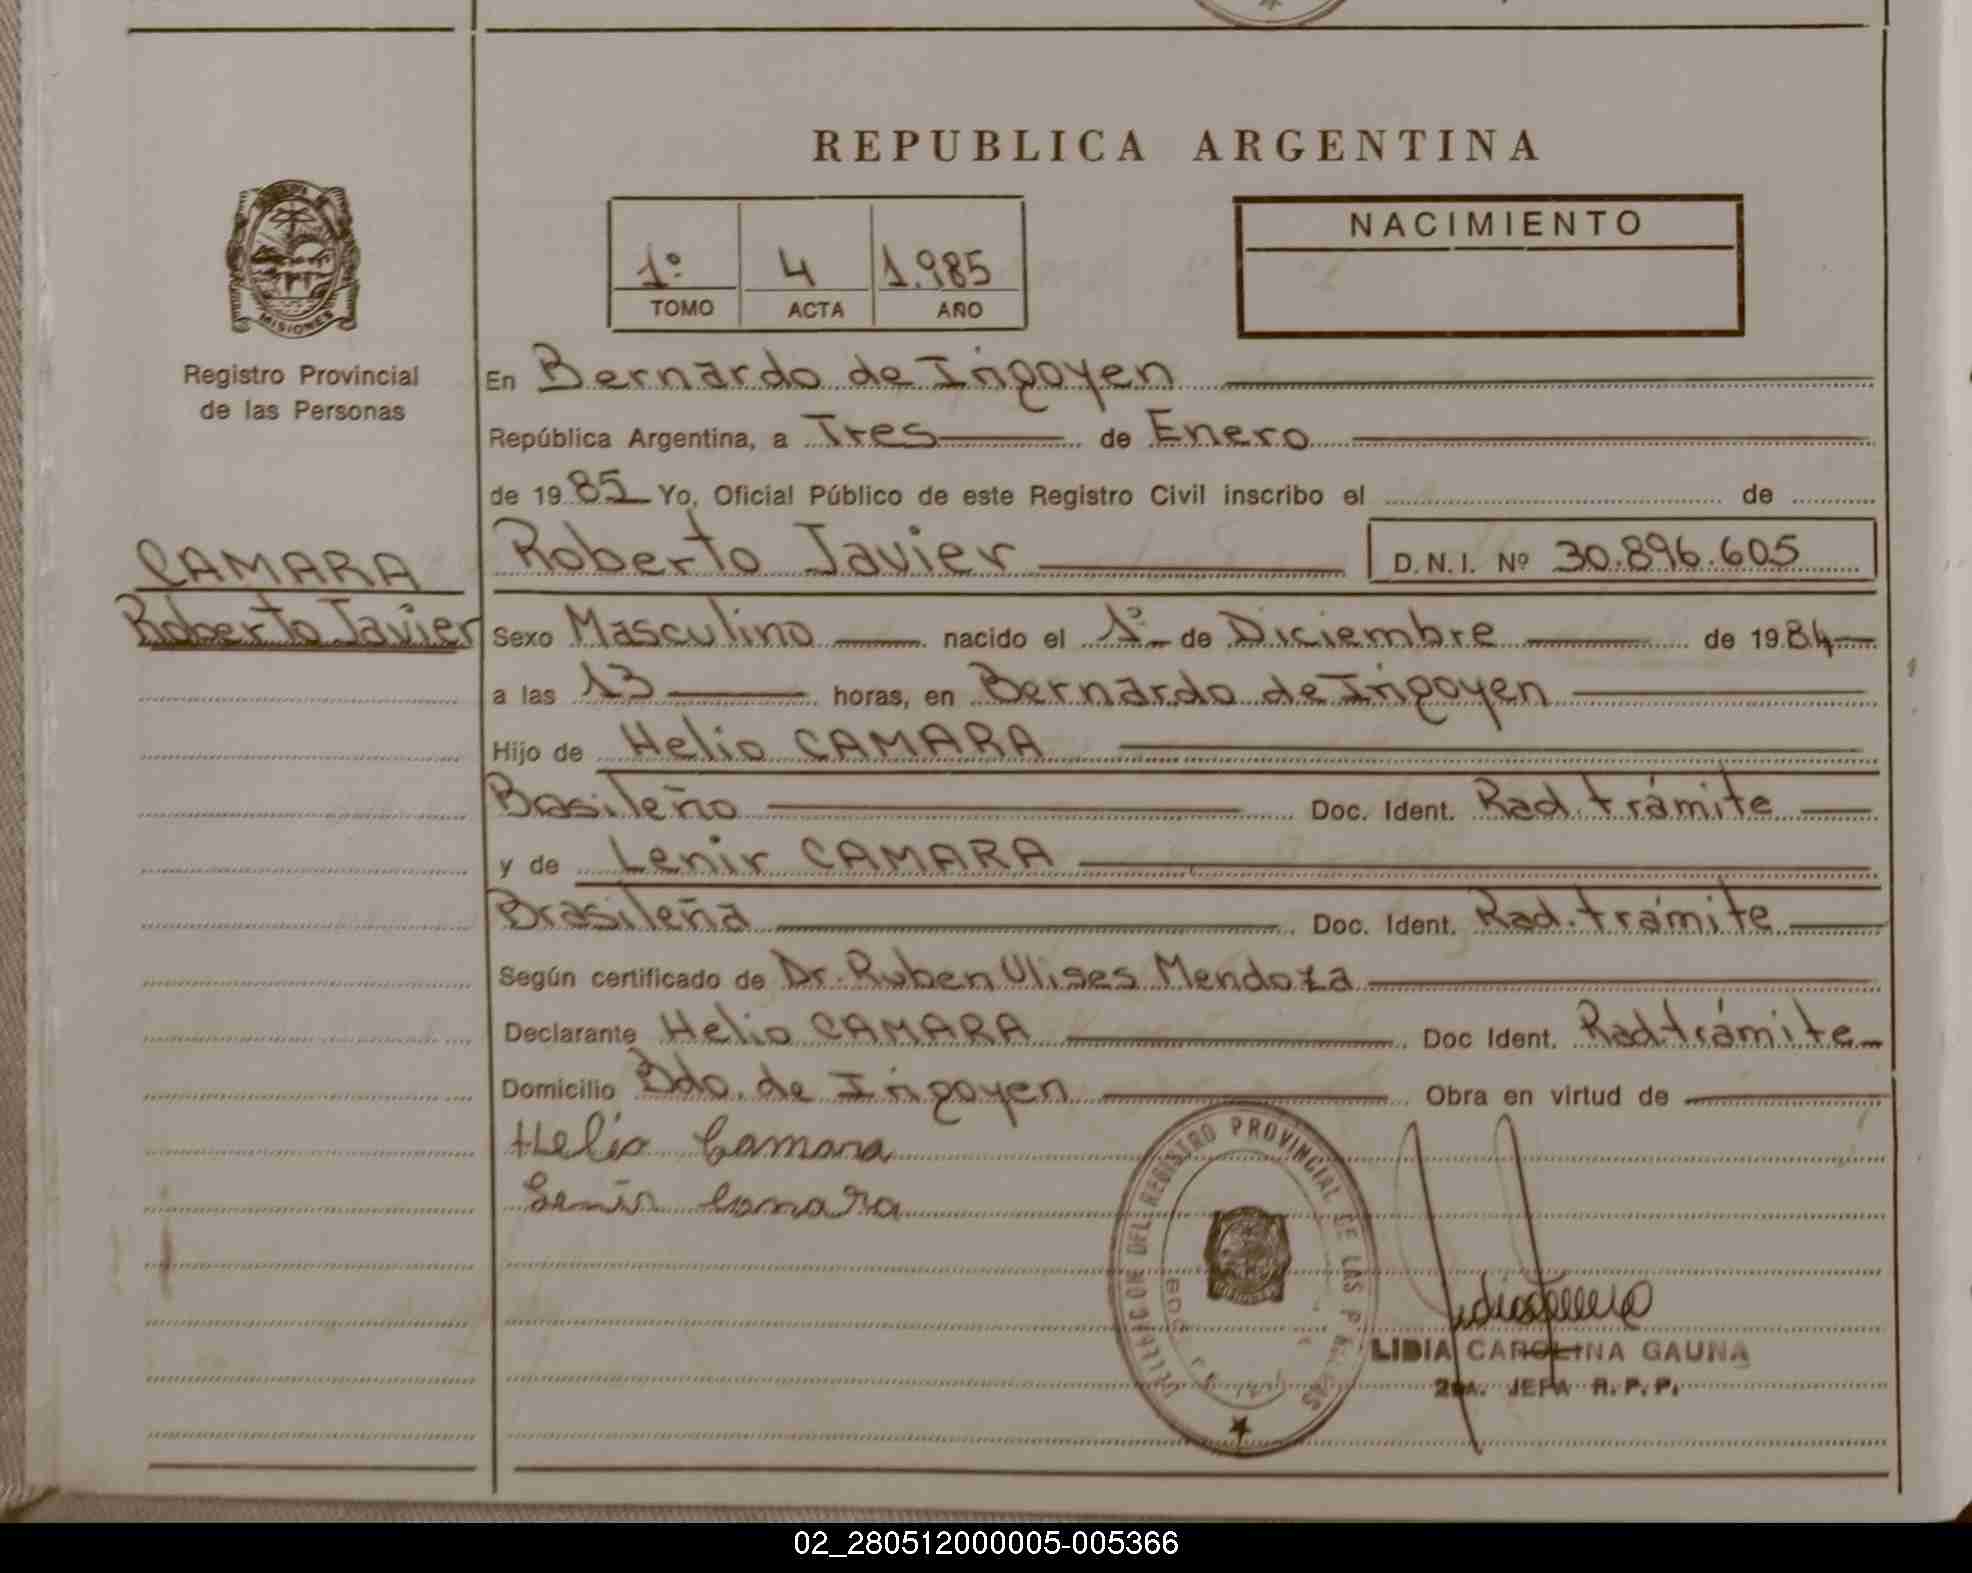 REPUBLICA ARGENTINA
MISIONES
Registro Provincial
de las Personas
NACIMIENTO
1º 4 1.985
TOMO ACTA AÑO
En Bernardo de Irigoyen
República Argentina, a Tres de Enero
de 1985 Yo, Oficial Público de este Registro Civil inscribo el de
CAMARA
Roberto Javier
Roberto Javier D.N.I. Nº 30.896.605
Sexo Masculino nacido el 1º de Diciembre de 1984
a las 13 horas, en Bernardo de Irigoyen
Hijo de Helio CAMARA
Basileño Doc. Ident. Rad. trámite
y de Lenir CAMARA
Brasileña Doc. Ident. Rad. trámite
Según certificado de Dr. Ruben Ulises Mendoza
Declarante Helio CAMARA Doc Ident. Rad. trámite
Domicilio Bdo. de Irigoyen Obra en virtud de
Helio Camara
Lenir Camara
DEL REGISTRO PROVINCIAL DE LAS
LIDIA CAROLINA GAUNA
2da. JEFA R.P.P.
02_280512000005-005366